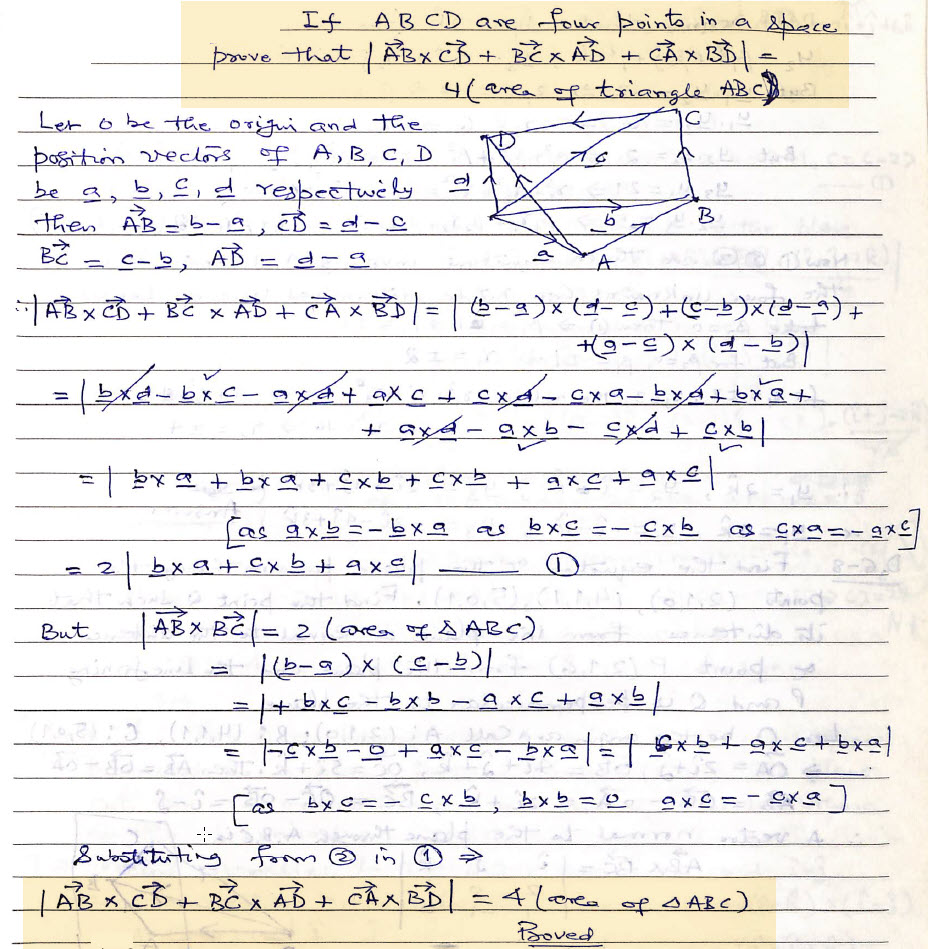 If ABCD are four points in a space
prove that |AB⃗ × CD⃗ + BC⃗ × AD⃗ + CA⃗ × BD⃗| =
4 (area of triangle ABC)
Let O be the origin and the
position vectors of A, B, C, D
be a, b, c, d respectively
then AB⃗ = b - a, CD⃗ = d - c
BC⃗ = c - b, AD⃗ = d - a
D
C
d
c
b
B
a
A
∴ |AB⃗ × CD⃗ + BC⃗ × AD⃗ + CA⃗ × BD⃗| = |(b-a) × (d-c) + (c-b) × (d-a) +
+(a-c) × (d-b)|
= |b×d - b×c - a×d + a×c + c×d - c×a - b×d + b×a +
+ a×d - a×b - c×d + c×b|
= |b×a + b×a + c×b + c×b + a×c + a×c|
[as a×b = -b×a as b×c = -c×b as c×a = -a×c]
= 2 |b×a + c×b + a×c| —— ①
But |AB⃗ × BC⃗| = 2 (area of Δ ABC)
= |(b-a) × (c-b)|
= |+ b×c - b×b - a×c + a×b|
= |-c×b - 0 + a×c - b×a| = |c×b + a×c + b×a|
[as b×c = -c×b, b×b = 0 a×c = -c×a]
Substituting form ② in ① ⇒
|AB⃗ × CD⃗ + BC⃗ × AD⃗ + CA⃗ × BD⃗| = 4 (area of Δ ABC)
Proved